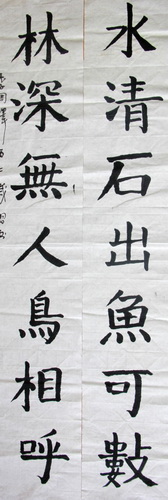 水清石出魚可數
林深無人鳥相呼